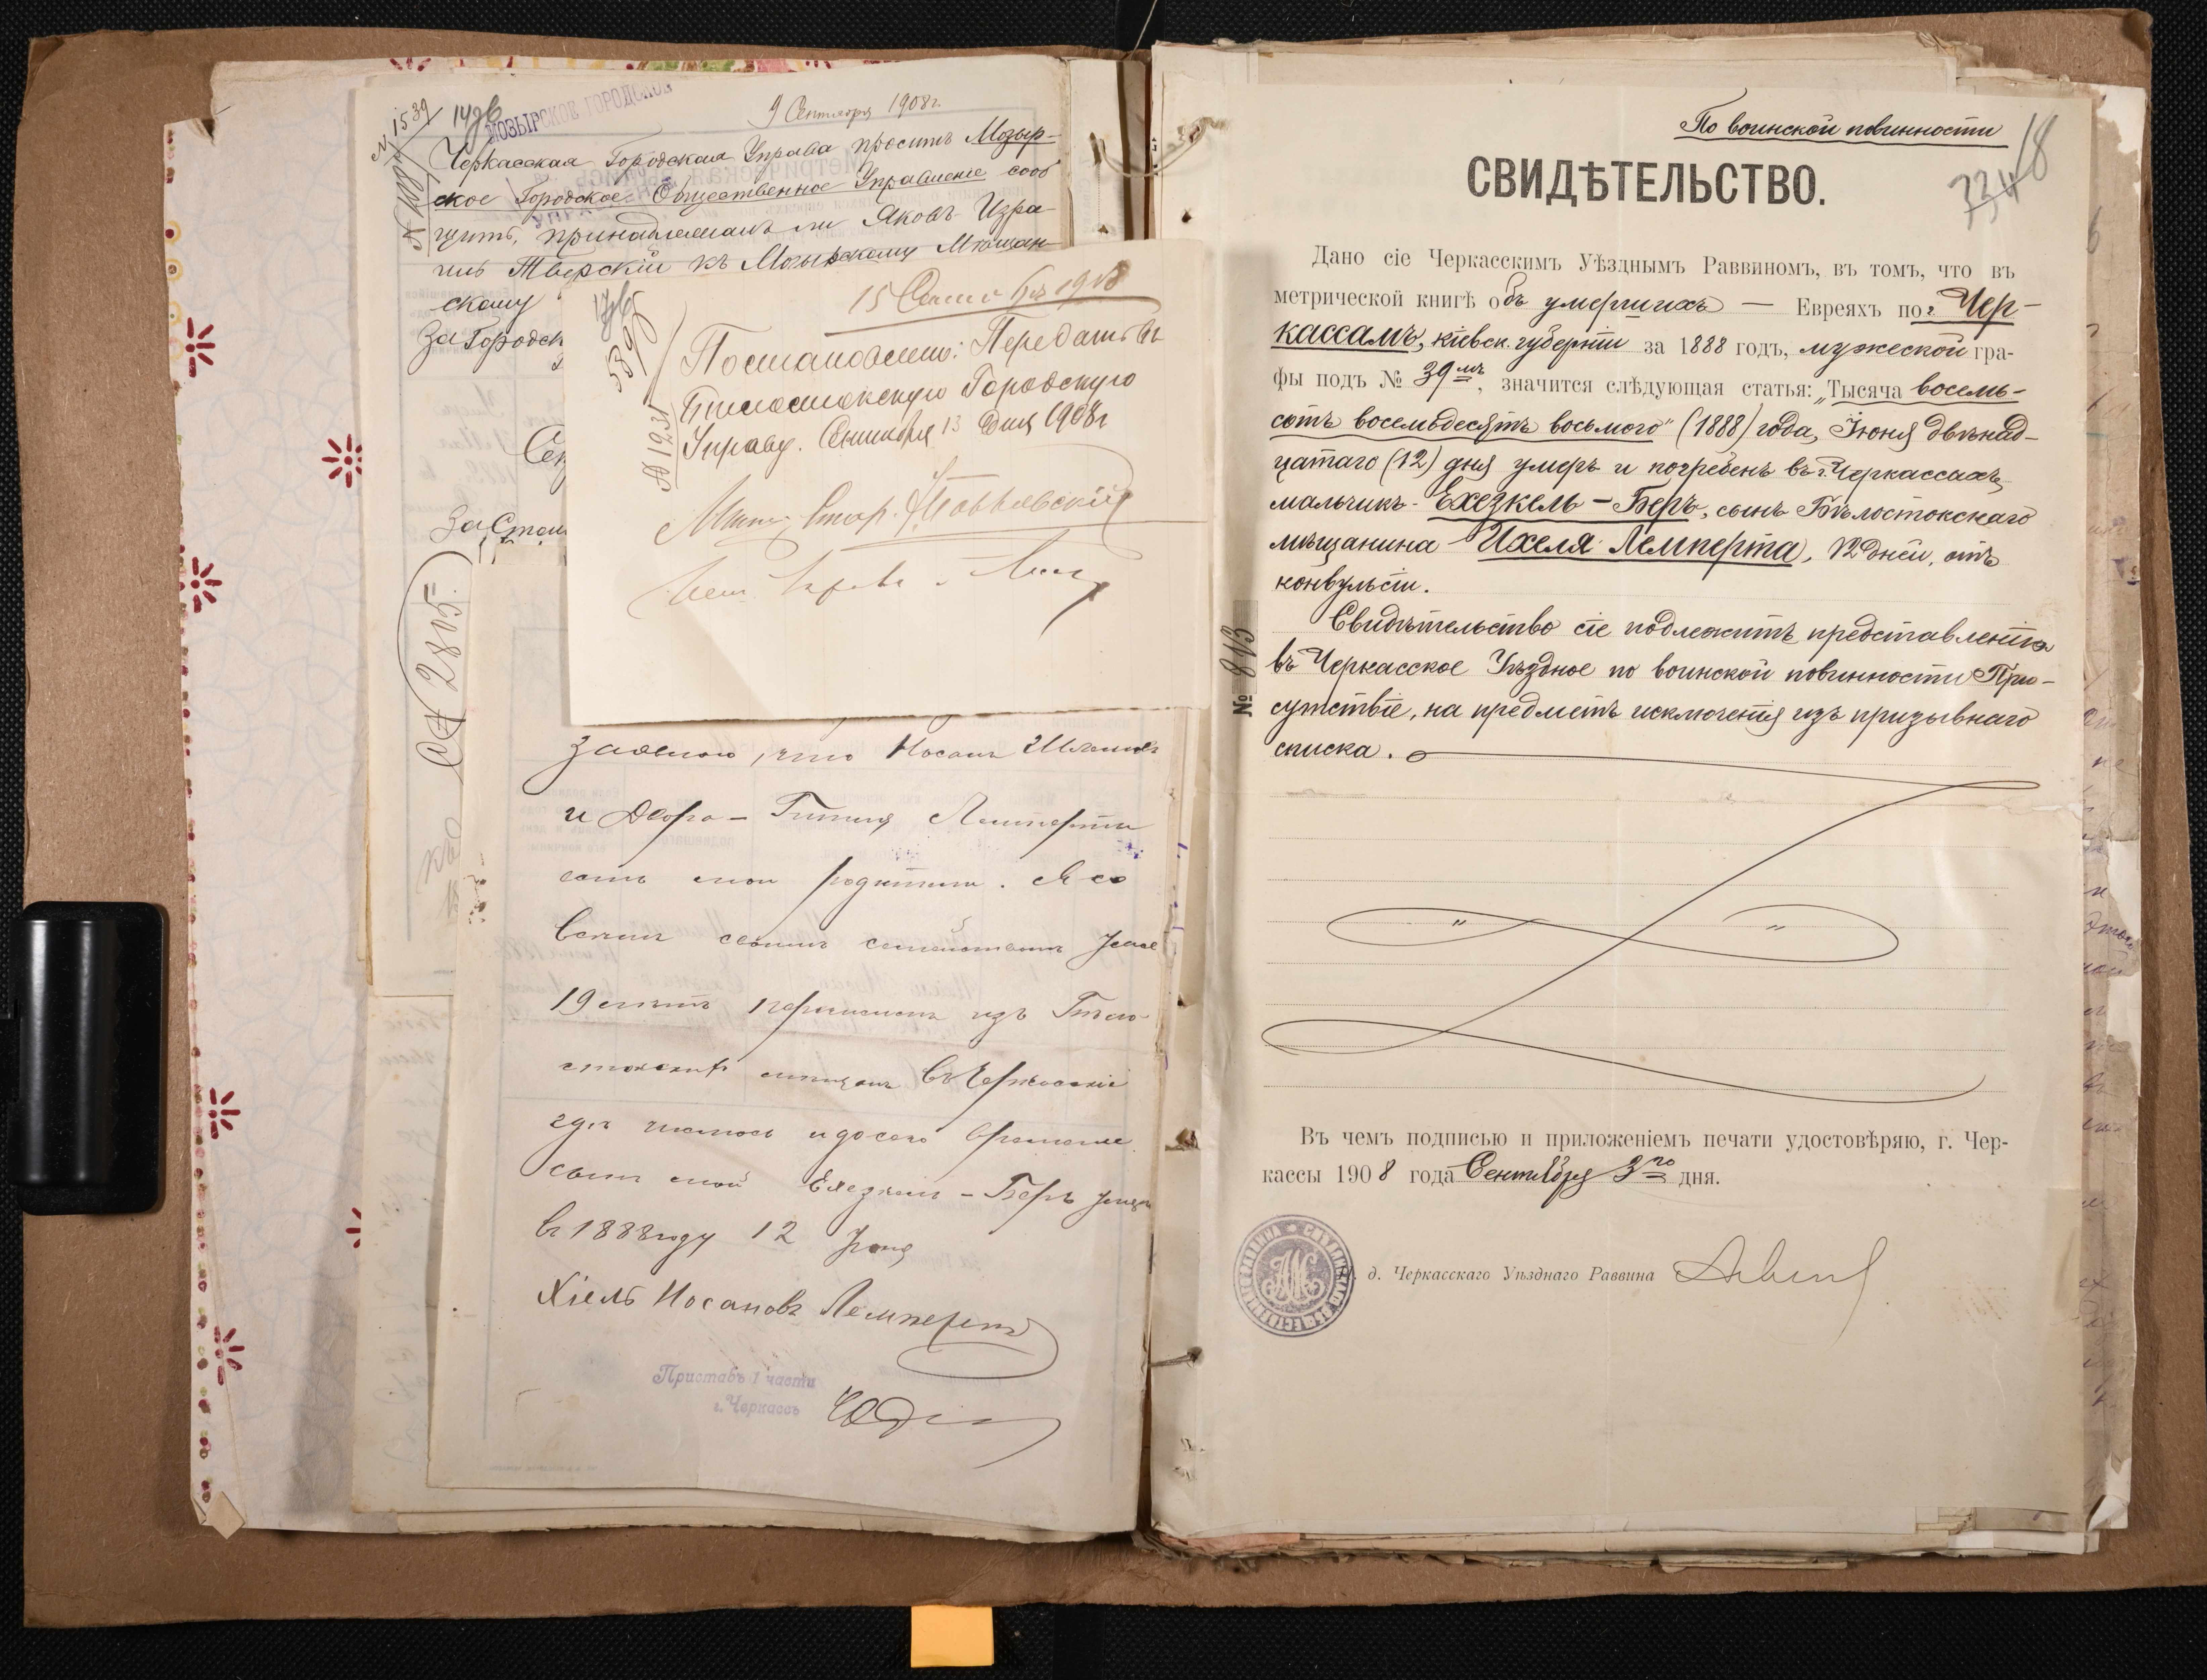 9 Сентября 1908 г.
МОЗЫРСКОЕ ГОРОДСКОЕ
№ 1539
Черкасская Городская Управа проситъ Мозыр-
ское Городское Общественное Управление сооб
щить, принадлежитъ ли Яковъ Изра
иль Тверскій къ Мозырскому Мѣщан-
скому
За Городск
Сек
За Стол
№ 2805.
15 Сент 1908
№ 1231
Постановлено: Передать въ
Бѣлостокскую Городскую
Управу. Сентября 13 дня 1908 г
заявляю, что Носонъ Шлемовъ
и Двора - Гитля Лемперты
суть мои родители. Я со
всемъ своимъ семействомъ уже
19 лѣтъ перечисленъ изъ Бѣло-
стокскихъ мѣщанъ въ Черкасскіе
гдѣ числюсь и до сего времени.
Сынъ мой Ехезкель - Беръ умеръ
въ 1888 году 12 Іюня
Хіель Носановъ Лемпертъ
Приставъ 1 части
г. Черкассъ
По воинской повинности
18
334
СВИДѢТЕЛЬСТВО.
Дано сіе Черкасскимъ Уѣзднымъ Раввиномъ, въ томъ, что въ
метрической книгѣ объ умершихъ — Евреяхъ по г. Чер-
кассамъ, кіевск. губерніи за 1888 годъ, мужеской гра-
фы подъ № 39мъ, значится слѣдующая статья: „Тысяча восемь-
сотъ восемьдесятъ восьмого" (1888) года, Іюня двѣнад-
цатаго (12) дня умеръ и погребенъ въ г. Черкассахъ
мальчикъ - Ехезкель - Беръ, сынъ Бѣлостокскаго
мѣщанина Ихеля Лемперта, 12 дней, отъ
конвульсіи.
Свидѣтельство сіе подлежитъ представленію
въ Черкасское Уѣздное по воинской повинности При-
сутствіе, на предметъ исключенія изъ призывнаго
списка.
№ 813
" "
Въ чемъ подписью и приложеніемъ печати удостовѣряю, г. Чер-
кассы 1908 года Сентября 3го дня.
д. Черкасскаго Уѣзднаго Раввина